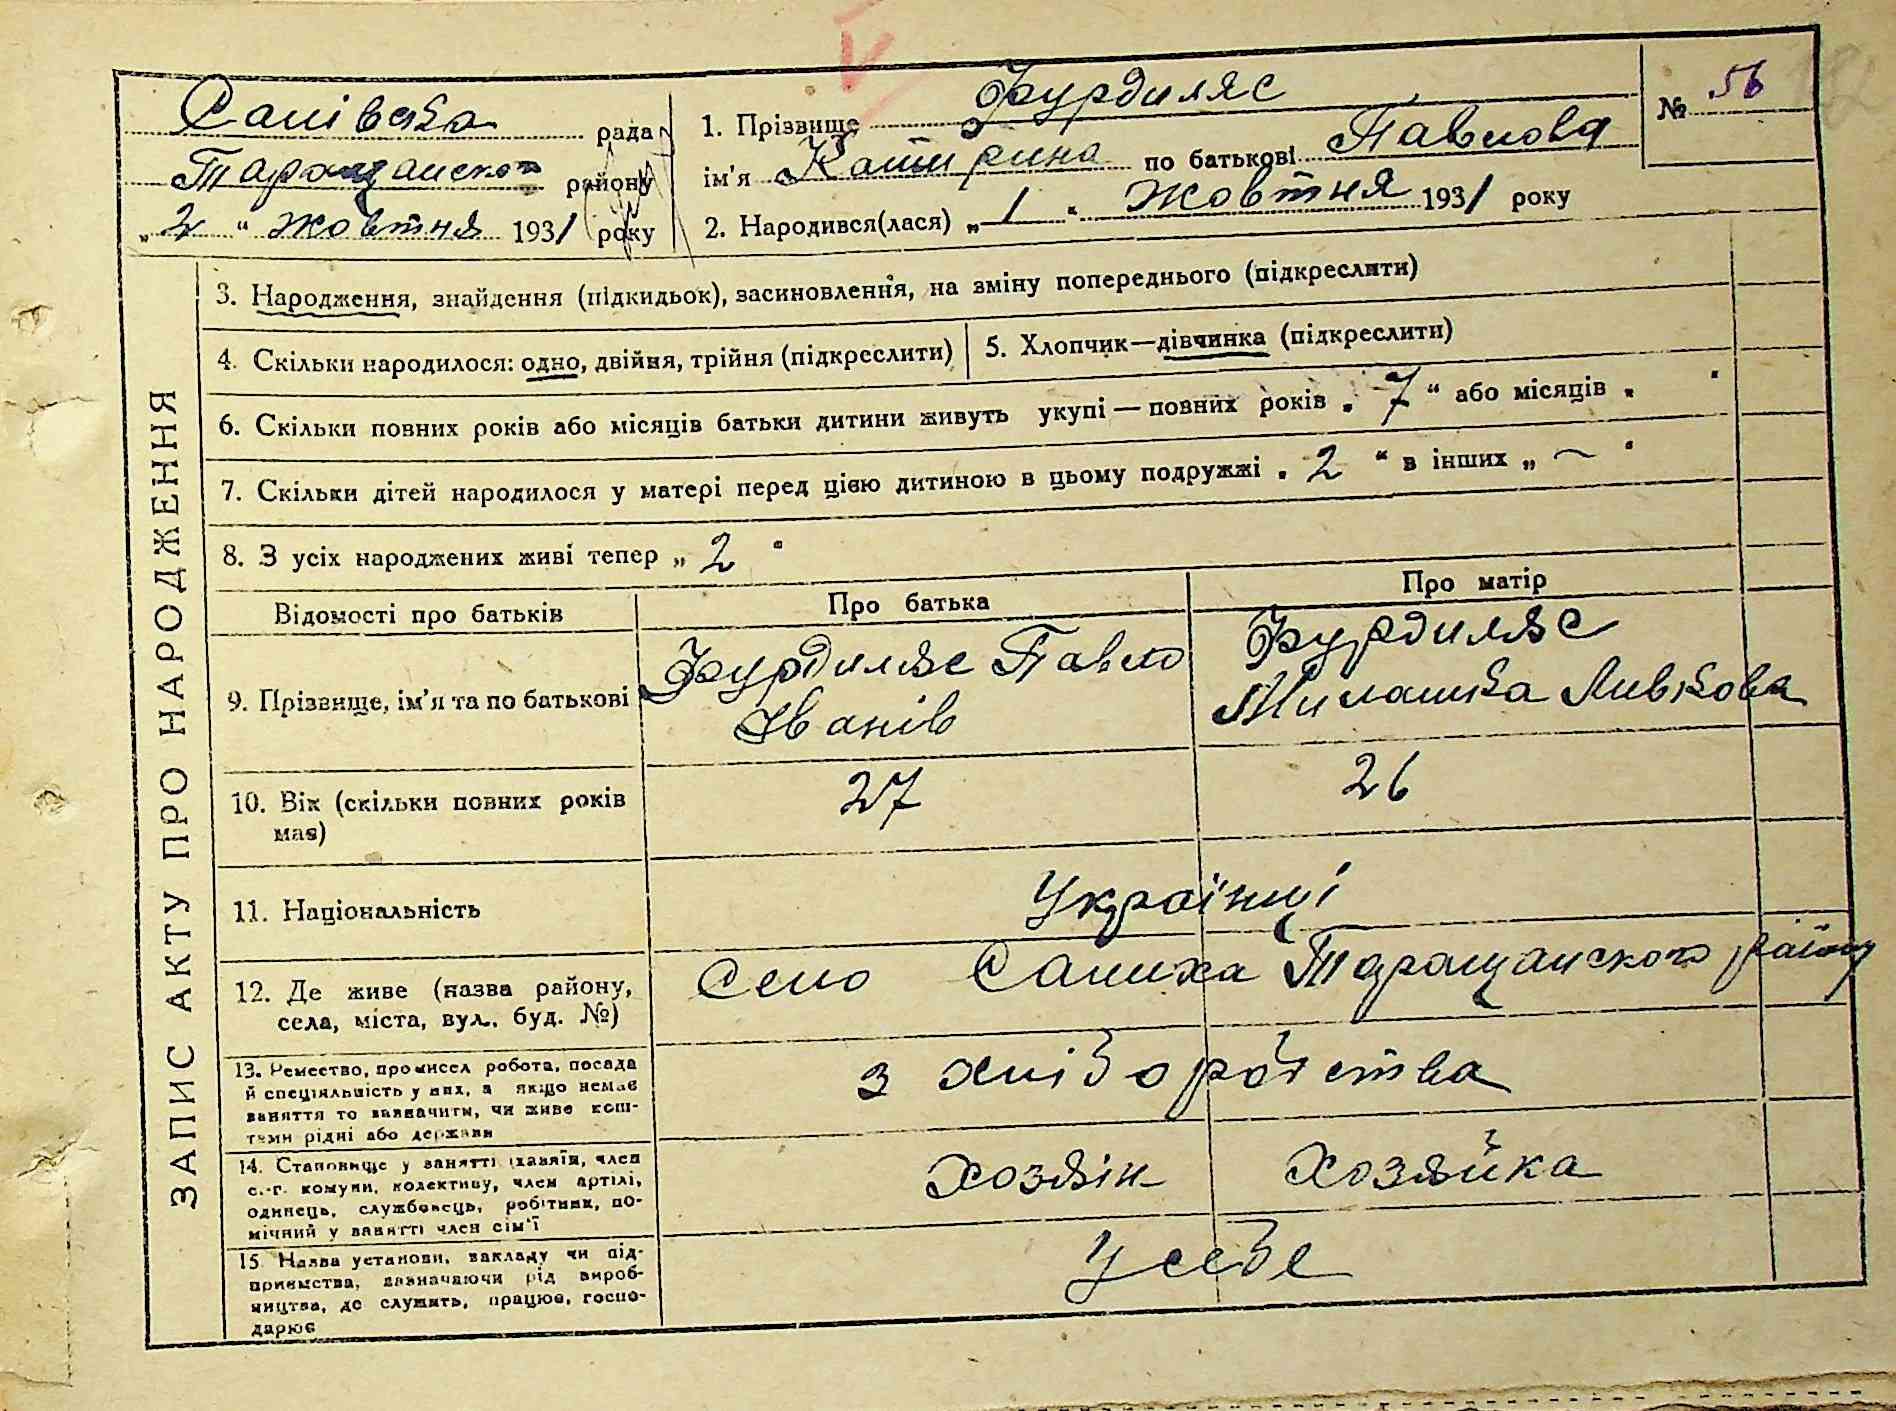 Салівська рада
Таращанского району
„ 2 “ жовтня 1931 року
1. Прізвище Фурдиляс
ім'я Катирина по батькові Павлова
2. Народився(лася) „ 1 “ жовтня 1931 року
№ 56
182
ЗАПИС АКТУ ПРО НАРОДЖЕННЯ
3. Народження, знайдення (підкидьок), засиновлення, на зміну попереднього (підкреслити)
4. Скільки народилося: одно, двійня, трійня (підкреслити)
5. Хлопчик—дівчинка (підкреслити)
6. Скільки повних років або місяців батьки дитини живуть укупі — повних років „ 7 “ або місяців „ “
7. Скільки дітей народилося у матері перед цією дитиною в цьому подружжі „ 2 “ в інших „ ~ “
8. З усіх народжених живі тепер „ 2 “
Відомості про батьків
Про батька
Про матір
9. Прізвище, ім'я та по батькові
Фурдиляс Павло
Іванів
Фурдиляс
Милашка Ливкова
10. Вік (скільки повних років
має)
27
26
11. Національність
Українці
12. Де живе (назва району,
села, міста, вул., буд. №)
Село Салиха Таращанского району
13. Ремество, промисел робота, посада
й спеціяльність у них, а якщо немає
заняття то зазначити, чи живе кош-
тами рідні або держави
з хліборобства
14. Становище у занятті (хазяїн, член
с.-г. комуни, колективу, член артілі,
одинець, службовець, робітник, по-
мічний у занятті член сім'ї
хозяін
хозяйка
15. Назва установи, закладу чи під-
приємства, зазначаючи рід вироб-
ництва, де служить, працює, госпо-
дарює
У себе